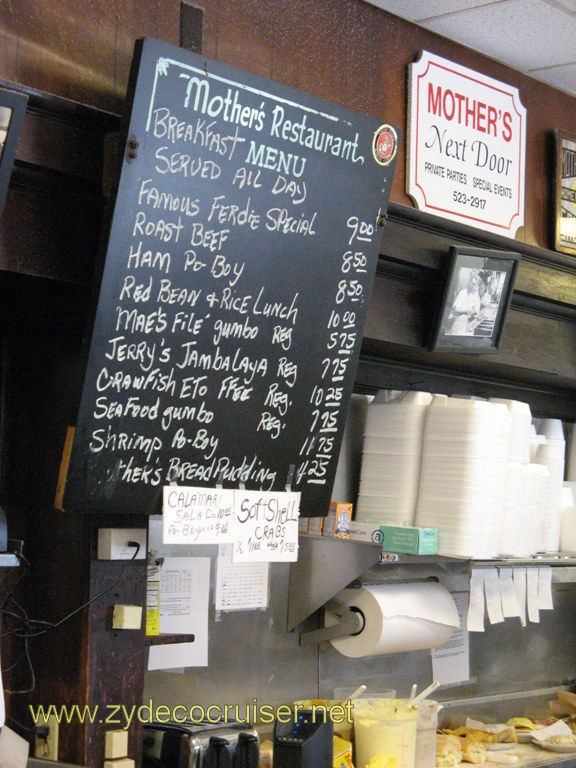 Mother's Restaurant
MENU
BREAKFAST
SERVED ALL DAY
FAMOUS FERDIE SPECIAL 9.00
ROAST BEEF 8.50
HAM PO-BOY 8.50
RED BEAN & RICE LUNCH 10.00
MAE'S FILE' gumbo REG 5.75
JERRY'S JAMBALAYA REG 7.75
CRAWFISH ETOFFEE REG. 10.25
SEAFOOD gumbo REG. 7.75
SHRIMP PO-BOY 11.75
THER'S BREAD PUDDING 4.25
CALAMARI
SALAD
PO-BOY
SOFTSHELL
CRABS
MOTHER'S
Next Door
PRIVATE PARTIES SPECIAL EVENTS
523-2917
www.zydecocruiser.net